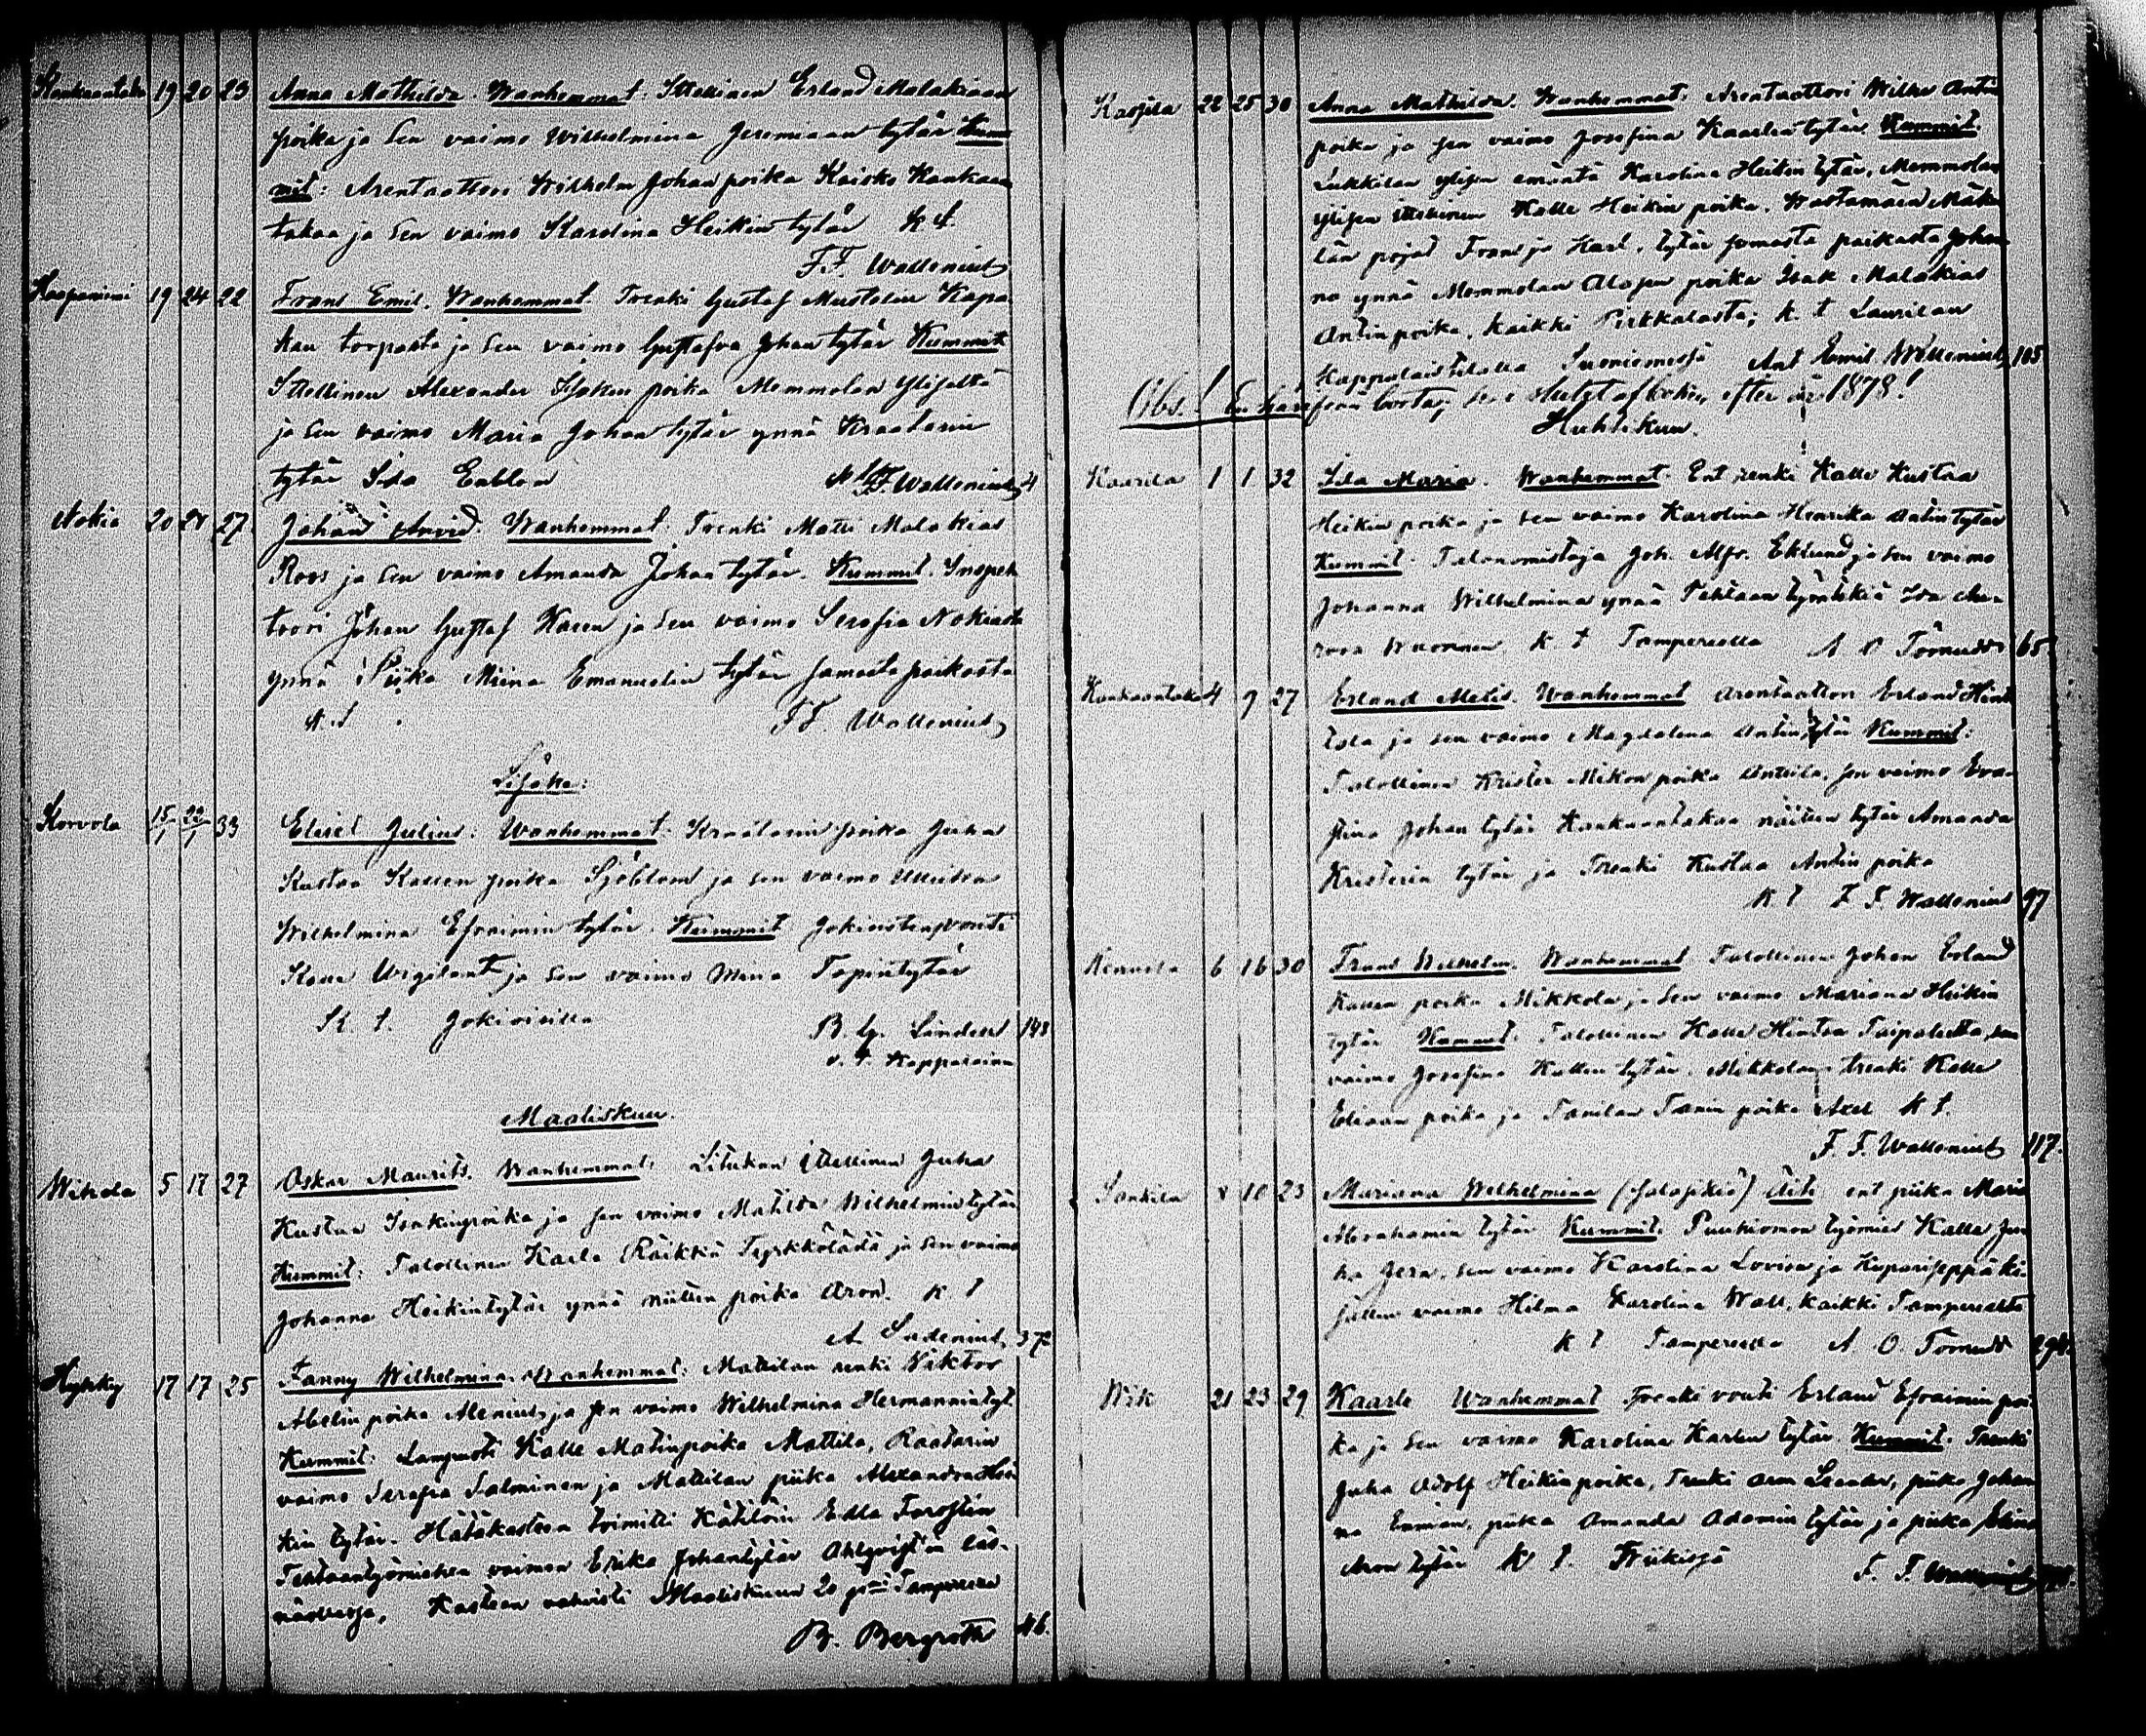 Kankaantaka 19 20 23 Anna Mathilda. Wanhemmat: Itsellinen Erland Malakiaan
poika ja sen vaimo Wilhelmina Jeremiaan tytär Kum
mit: Arentaattori Wilhelm Johan poika Kaisko Kankaan
takaa ja sen vaimo Karolina Heikin tytär k t.
F.F. Wallenius
Haapaniemi 19 24 22 Frans Emil. Wanhemmat. Trenki Gustaf Mustelin
kan torpasta ja sen vaimo Gustafva Johan tytär Kummit
Itsellinen Alexander Isakin poika Mommolan Ylisestä
ja sen vaimo Maria Johan tytär ynnä Kraatarin
tytär Ida Enblom k t F.F. Wallenius 4
Nokia 20 24 27 Johan Arvid. Wanhemmat. Trenki Matti Malakias
Roos ja sen vaimo Amanda Johan tytär. Kummit. Inspek
toori Johan Gustaf Karen ja sen vaimo Serafia Nokiasta
ynnä Piika Miina Emanuelin tytär samasta paikasta
k. t F.F. Wallenius
Lisäke:
Korvola 15/1 22/1 33 Eliel Julius. Wanhemmat. Kraatarin poika Juha
Kustaa Kallen poika Sjöblom ja sen vaimo Ulriika
Wilhelmina Efraimin tytär. Kummit Jokioisten vouti
Kalle Wigilant ja sen vaimo Mina Tapintytär
K. t. Jokioisilla B. G. Lindell 148
v. t. Kappalainen
Maaliskuu.
Wihola 5 17 27 Oskar Maurits. Wanhemmat. Litukan itsellinen Juha
Kustaa Isakinpoika ja sen vaimo Matilda Wilhelmintytär
Kummit: Talollinen Kaarle Räikkä Tyrkkölästä ja sen vaimo
Johanna Heikintytär ynnä niitten poika Aron. k t
A. Indenius 372
Hyhky 17 17 25 Fanny Wilhelmina. Wanhemmat: Mattilan renki Viktor
Abelin poika Alenius ja sen vaimo Wilhelmina Hermannintyt
Kummit: Lampuoti Kalle Matinpoika Mattila, Raatarin
vaimo Serafia Salminen ja Mattilan piika Alexandra Hei
kin tytär. Hätäkasteen toimitti Kätilön Edla Forsstin
Tehtaantyömiehen vaimon Erika Johantytär Ahlqvist'in läs-
näollessa, Kasteen vahvisti Maaliskuun 20 p:nä Tampereen
B. Bergroth 46.
Kaarila 22 25 30 Anna Mathilda. Wanhemmat. Arentaattori Wilhe Antin
poika ja sen vaimo Josefina Kaarlen tytär. Kummit.
Lukkilan ylisen emäntä Karolina Heikin tytär, Mommolan
ylisen itsekinen Kalle Heikin poika. Wastamäen Mäke
län pojat Frans ja Karl, tytär samasta paikasta Johan
na ynnä Mommolan Alasen poika Isak Malakias
Antinpoika, kaikki Pirkkalasta; k. t Laurilan
Kappalaistilalla Suoniemessä Ant Emil Wallenius 105
Obs.! En har borta, efter år 1878!
Huhtikuu.
Kaarila 1 1 32 Ida Maria. Wanhemmat. Ent renki Kalle Kustaa
Heikin poika ja sen vaimo Karolina Henrika Antin tytär
Kummit. Talonomistaja Joh. Alfr. Eklund ja sen vaimo
Johanna Wilhelmina ynnä Tehtaan työntekiä Ida
Wuorinen K. t Tampereella A O Törnudd 65
Kankaantaka 4 9 27 Erland Metis. Wanhemmat Arentaattori Erland
ja sen vaimo Magdalena Antin tytär Kummit:
Talollinen Krister Mikon poika Anttila, sen vaimo Eva
stina Johan tytär Kankaantakaa näitten tytär Amanda
Kristerin tytär ja Trenki Kustaa Antin poika
k t F. F. Wallenius 97
Kennilä 6 16 30 Frans Wilhelm. Wanhemmat Talollinen Johan Erland
Kallen poika Mikkola ja sen vaimo Mariana Heikin
tytär Kummit. Talollinen Kalle Hintsa Taipaleelta, sen
vaimo Josefina Kallen tytär. Mikkolan trenki Kalle
Eliaan poika ja Tanilan Tanin poika Axel k t.
F. F. Wallenius 117.
Sankila 8 10 23 Mariana Wilhelmina (salasikiö) Äiti ent piika Maria
Abrahamin tytär Kummit. Puuhiomon työmies Kalle Ju
ha Jern, sen vaimo Karolina Lovisa ja Kuparisepän ki-
sällin vaimo Hilma Karolina Wall, kaikki Tampereelta
k t Tampereella A O Törnudd 298.
Wik 21 23 29 Kaarle Wanhemmat Trenki vouti Erland Efraimin poi
ka ja sen vaimo Karolina Karlen tytär. Kummit. Trenki
Juha Adolf Heikinpoika, Trenki Aron Leander, piika Johan
na Enmian, piika Amanda Adamin tytär ja piika Stina
Aron tytär k t. Wiikissä F. F. Wallenius